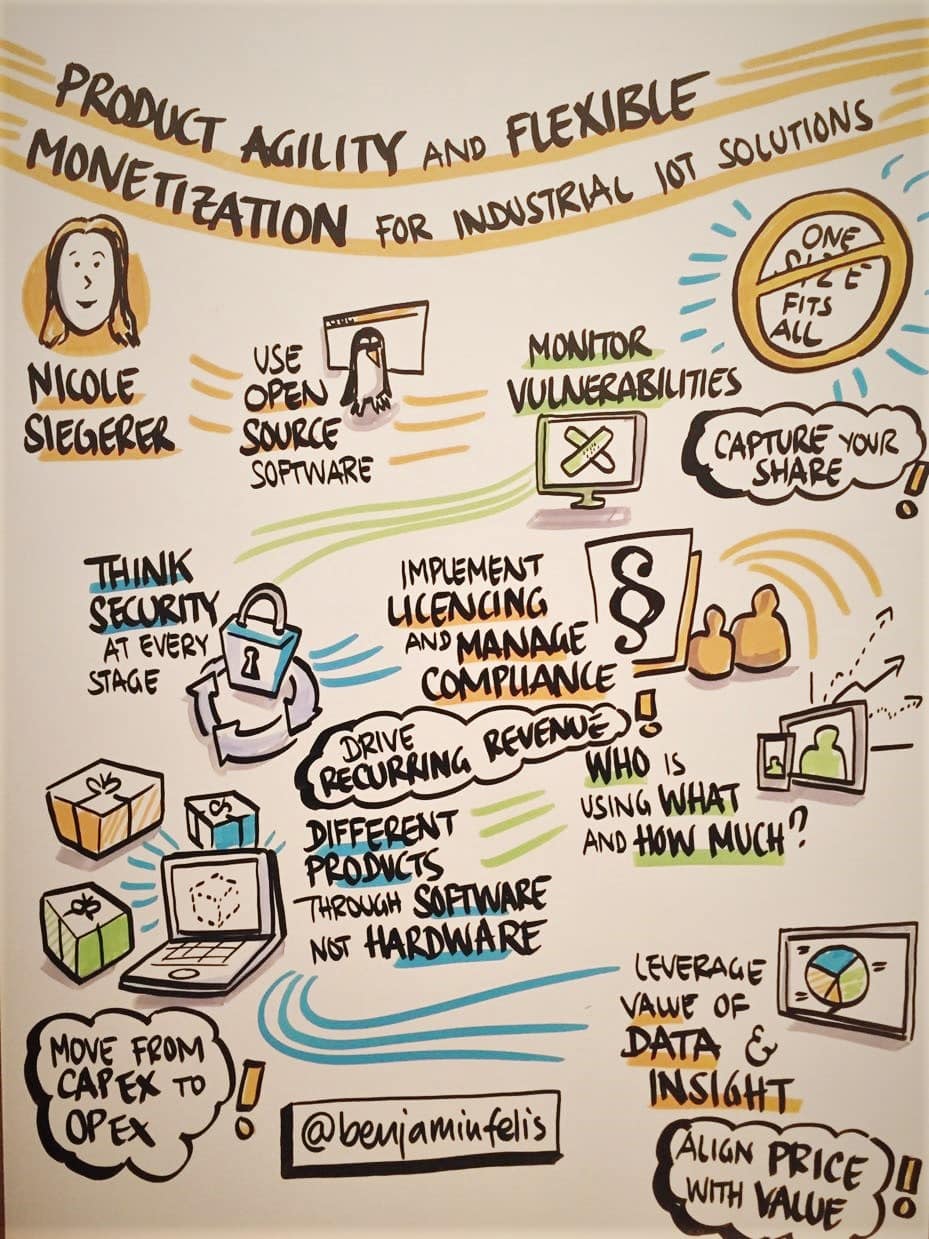 PRODUCT AGILITY AND FLEXIBLE
MONETIZATION FOR INDUSTRIAL IOT SOLUTIONS
NICOLE
SIEGERER
USE
OPEN
SOURCE
SOFTWARE
MONITOR
VULNERABILITIES
ONE
SIZE
FITS
ALL
CAPTURE YOUR
SHARE !
THINK
SECURITY
AT EVERY
STAGE
IMPLEMENT
LICENCING
AND MANAGE
COMPLIANCE
§
DRIVE
RECURRING REVENUE !
WHO IS
USING WHAT
AND HOW MUCH?
DIFFERENT
PRODUCTS
THROUGH SOFTWARE
NOT HARDWARE
LEVERAGE
VALUE OF
DATA &
INSIGHT
MOVE FROM
CAPEX TO
OPEX !
@benjaminfelis
ALIGN PRICE
WITH VALUE !